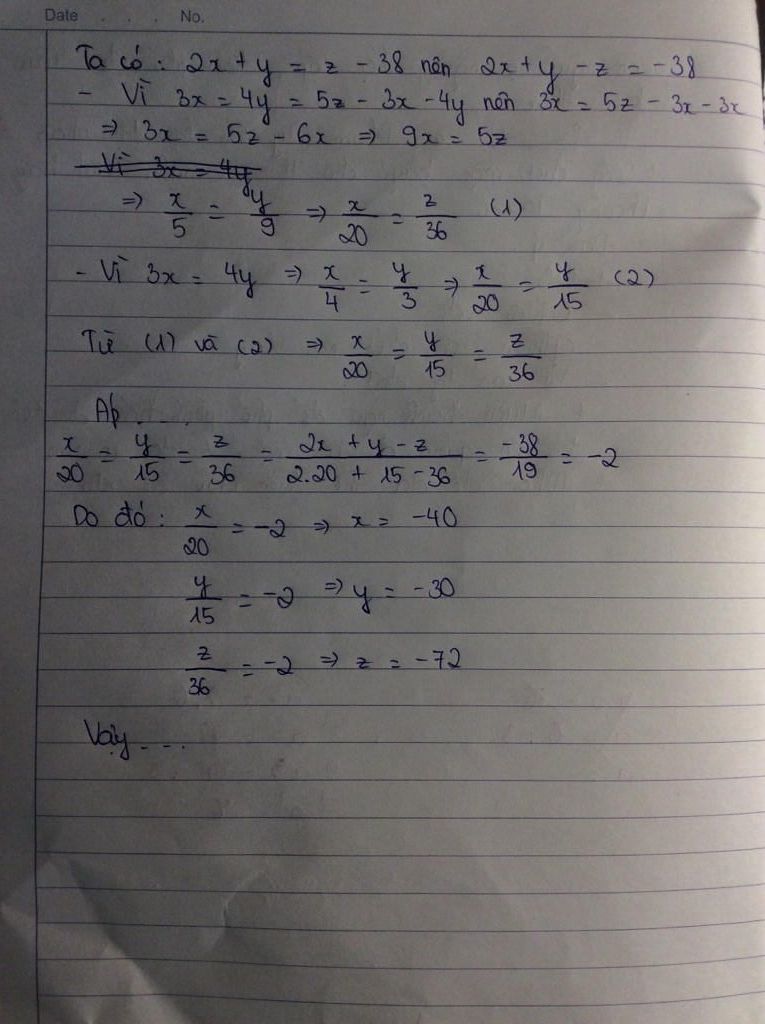 Date . . . No.
Ta có : 2x + y = z - 38 nên 2x + y - z = -38
- Vì 3x = 4y = 5z - 3x - 4y nên 3x = 5z - 3x - 3x
⇒ 3x = 5z - 6x ⇒ 9x = 5z
Vì 3x = 4y
⇒ x/5 = y/9 ⇒ x/20 = z/36 (1)
- Vì 3x = 4y ⇒ x/4 = y/3 ⇒ x/20 = y/15 (2)
Từ (1) và (2) ⇒ x/20 = y/15 = z/36
Áp . . . .
x/20 = y/15 = z/36 = (2x + y - z)/(2.20 + 15 - 36) = -38/19 = -2
Do đó : x/20 = -2 ⇒ x = -40
y/15 = -2 ⇒ y = -30
z/36 = -2 ⇒ z = -72
Vậy - - -